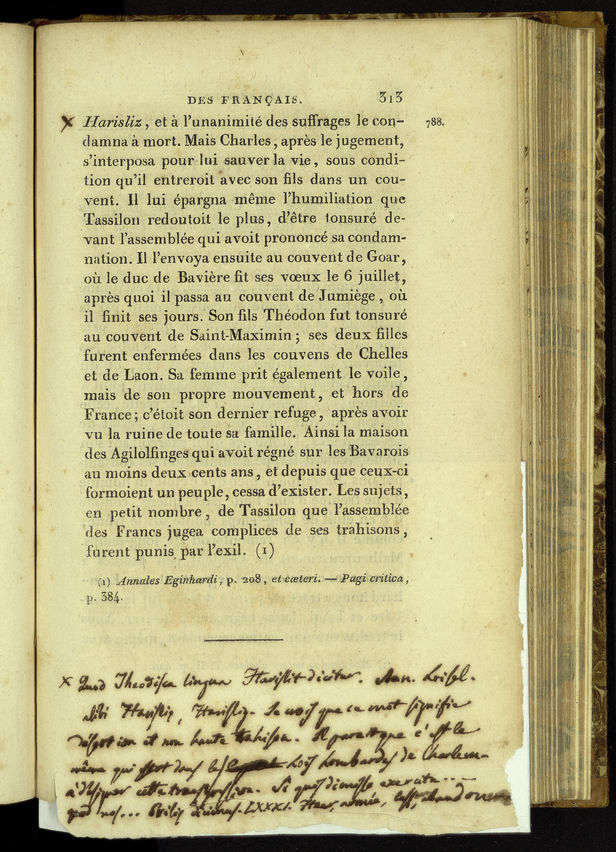 DES FRANÇAIS. 313
x Harisliz, et à l'unanimité des suffrages le con- 788.
damna à mort. Mais Charles, après le jugement,
s'interposa pour lui sauver la vie, sous condi-
tion qu'il entreroit avec son fils dans un cou-
vent. Il lui épargna même l'humiliation que
Tassilon redoutoit le plus, d'être tonsuré de-
vant l'assemblée qui avoit prononcé sa condam-
nation. Il l'envoya ensuite au couvent de Goar,
où le duc de Bavière fit ses vœux le 6 juillet,
après quoi il passa au couvent de Jumiège, où
il finit ses jours. Son fils Théodon fut tonsuré
au couvent de Saint-Maximin; ses deux filles
furent enfermées dans les couvens de Chelles
et de Laon. Sa femme prit également le voile,
mais de son propre mouvement, et hors de
France; c'étoit son dernier refuge, après avoir
vu la ruine de toute sa famille. Ainsi la maison
des Agilolfinges qui avoit régné sur les Bavarois
au moins deux cents ans, et depuis que ceux-ci
formoient un peuple, cessa d'exister. Les sujets,
en petit nombre, de Tassilon que l'assemblée
des Francs jugea complices de ses trahisons,
furent punis par l'exil. (1)
(1) Annales Eginhardi, p. 208, et cæteri. — Pagi critica,
p. 384.
x Quod Theodisca lingua Harislit dicitur. Ann. Loisel.
alibi Harisliz. Je crois que ce mot signifie
et non haute trahison. Il paroit que c'est le
même qui dans les Lois Lombardes de Charlem-
Si quis exercitu
LXXXI.